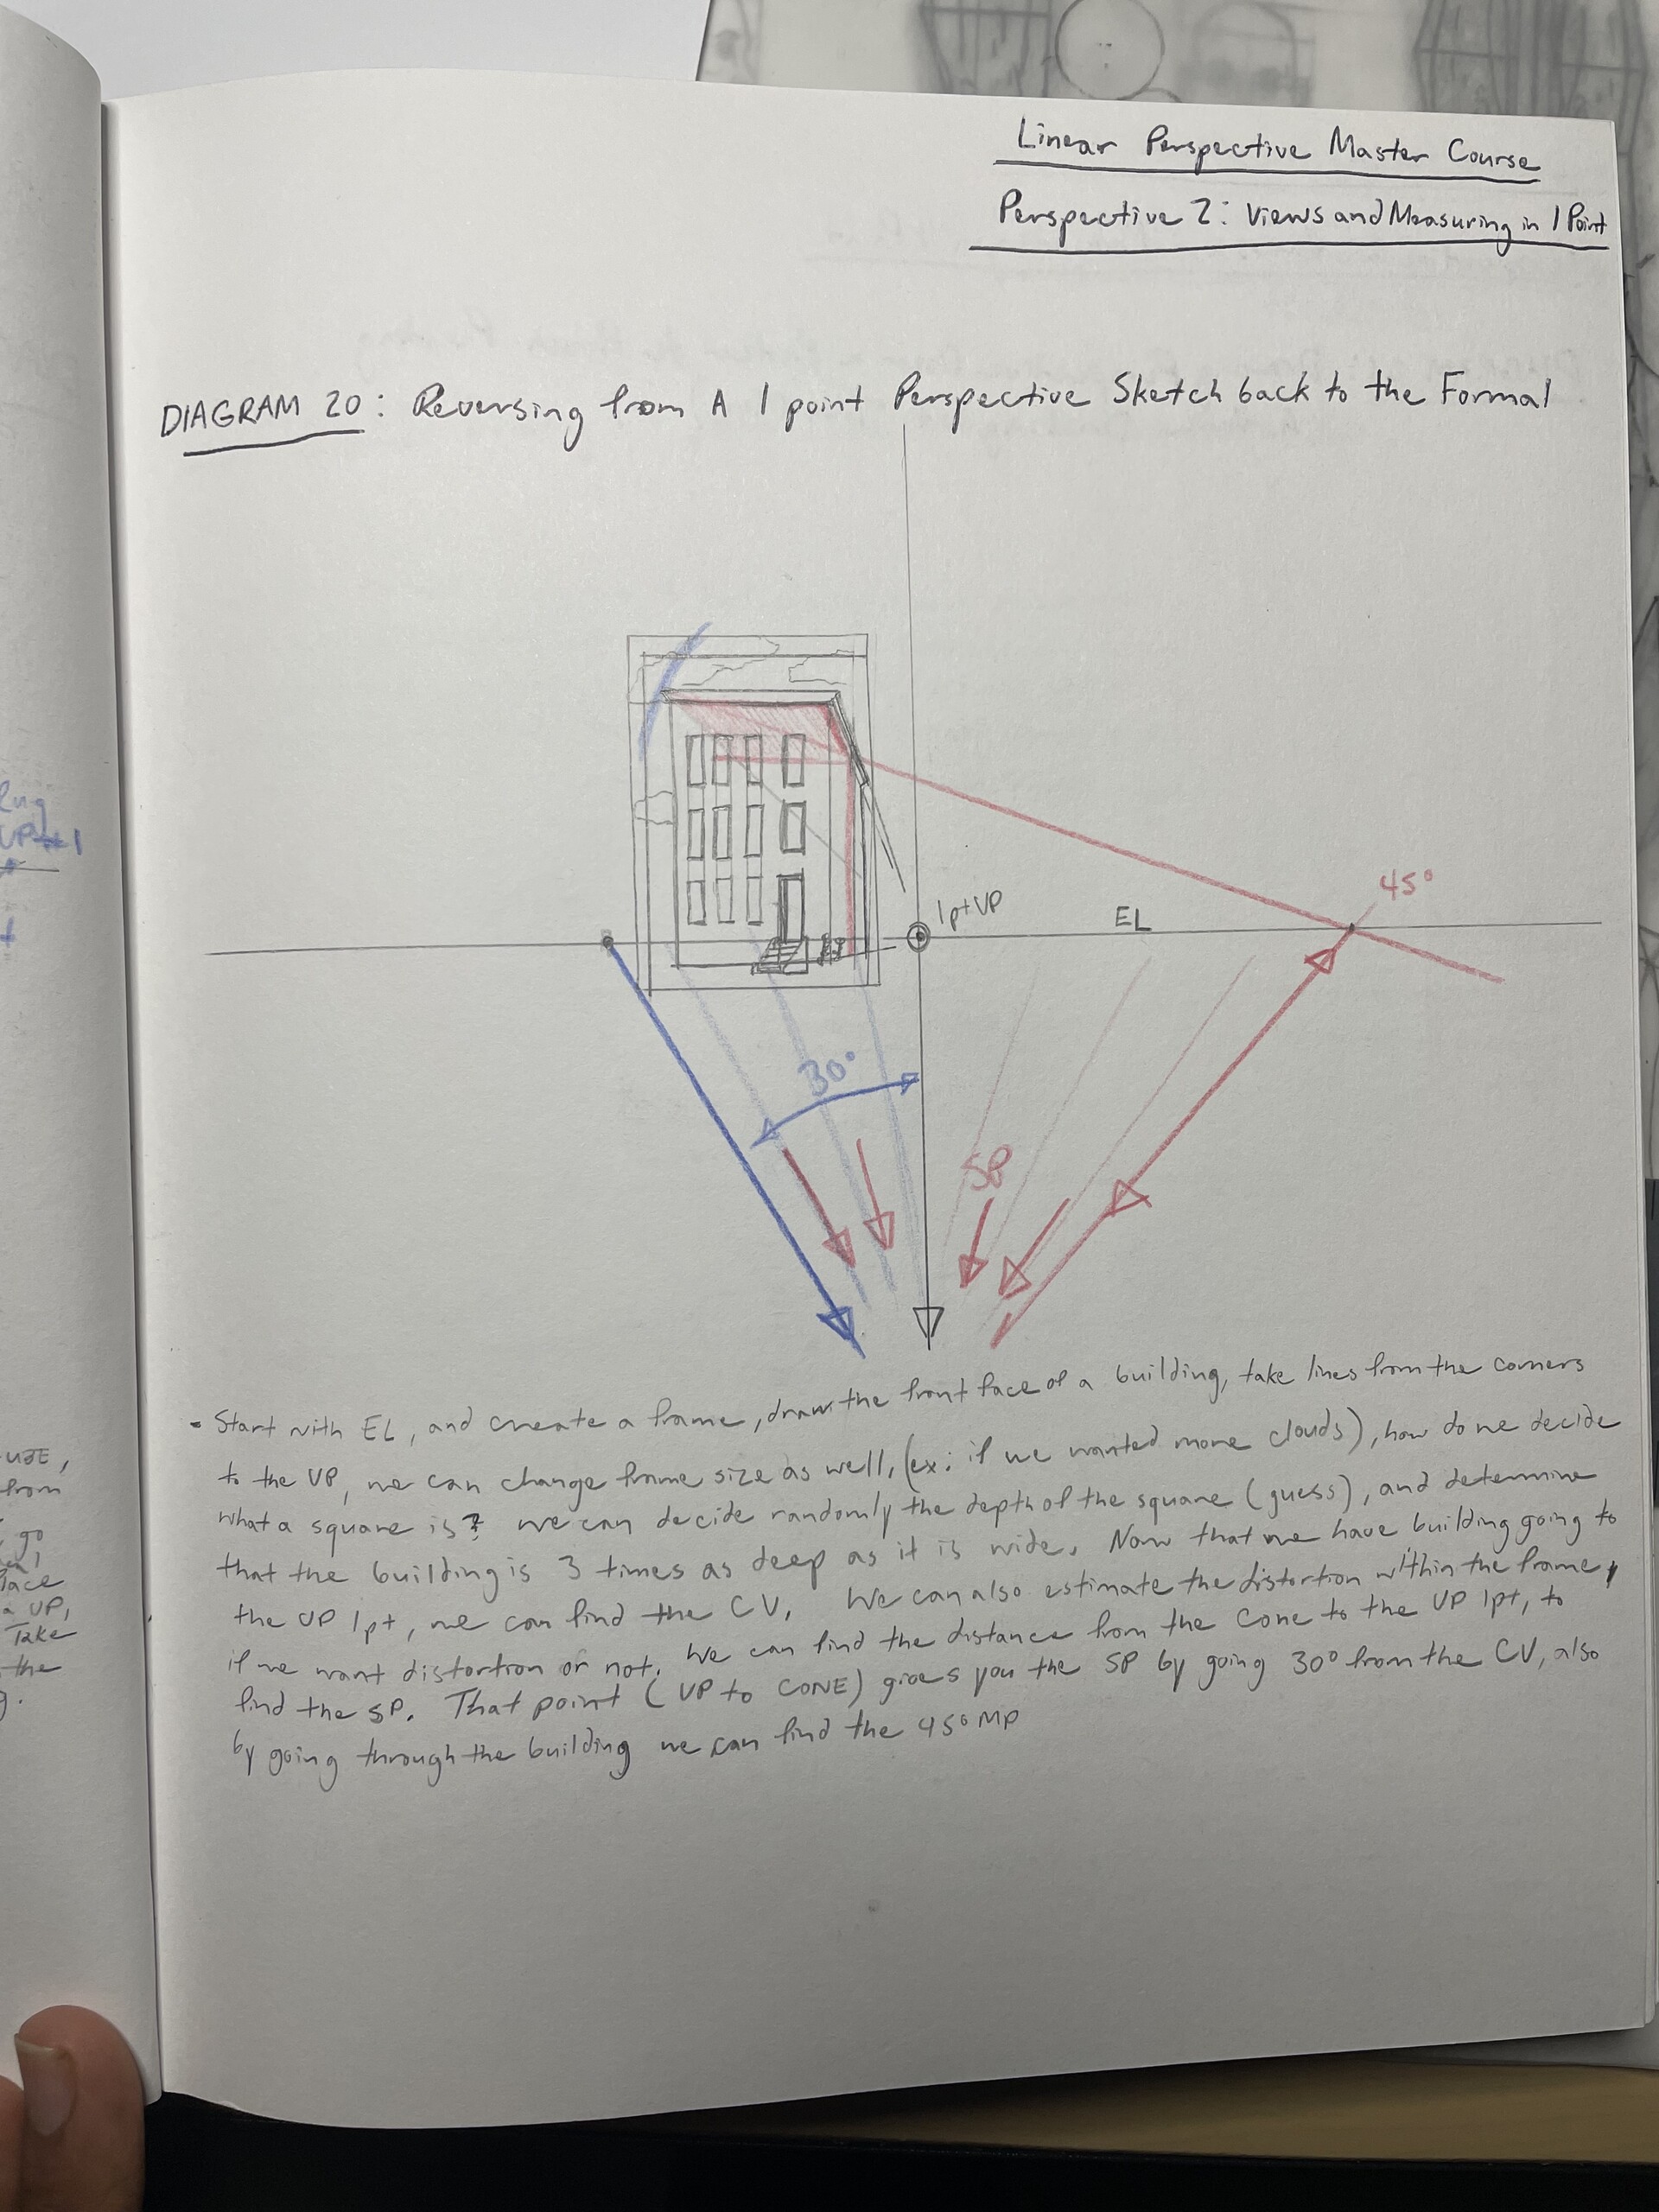 Linear Perspective Master Course
Perspective 2: Views and Measuring in 1 Point
DIAGRAM 20: Reversing from A 1 point Perspective Sketch back to the Formal
45°
1pt VP
EL
30°
SP
- Start with EL, and create a frame, draw the front face of a building, take lines from the corners
to the VP, we can change frame size as well, (ex: if we wanted more clouds), how do we decide
what a square is? we can decide randomly the depth of the square (guess), and determine
that the building is 3 times as deep as it is wide. Now that we have building going to
the VP 1pt, we can find the CV. We can also estimate the distortion within the frame,
if we want distortion or not. We can find the distance from the cone to the VP 1pt, to
find the SP. That point (VP to CONE) gives you the SP by going 30° from the CV, also
by going through the building we can find the 45° MP
UP#1
use,
from
go
place
a VP,
Take
the